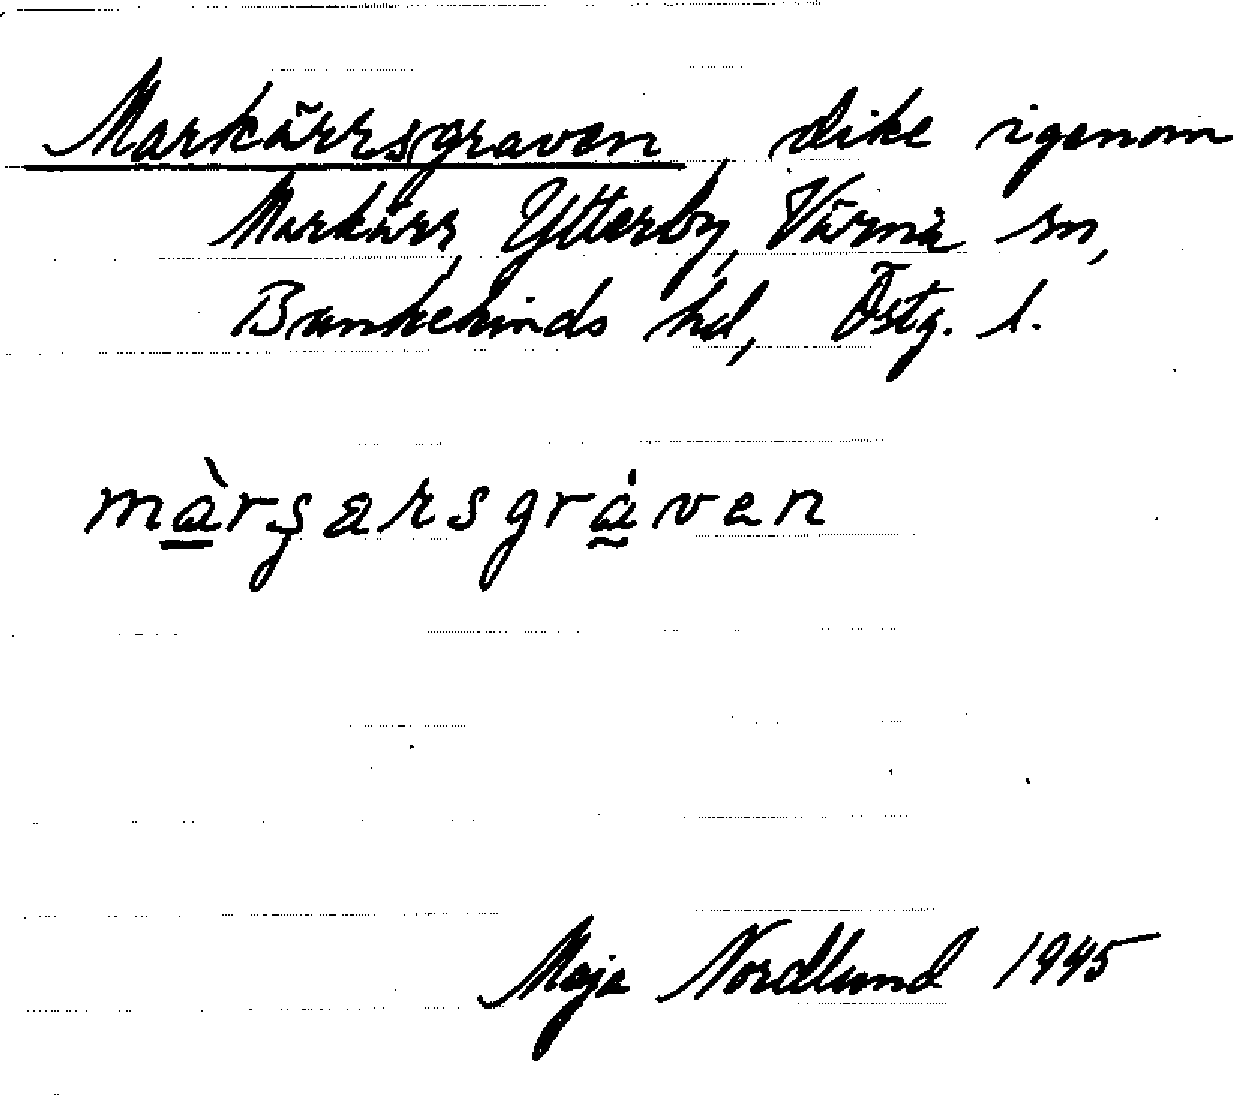 Markärrsgraven dike igenom
Markärr, Ytterby, Värna sn,
Bankekinds hd, Östg. l.
màrşarsgráven
Maja Nordlund 1945